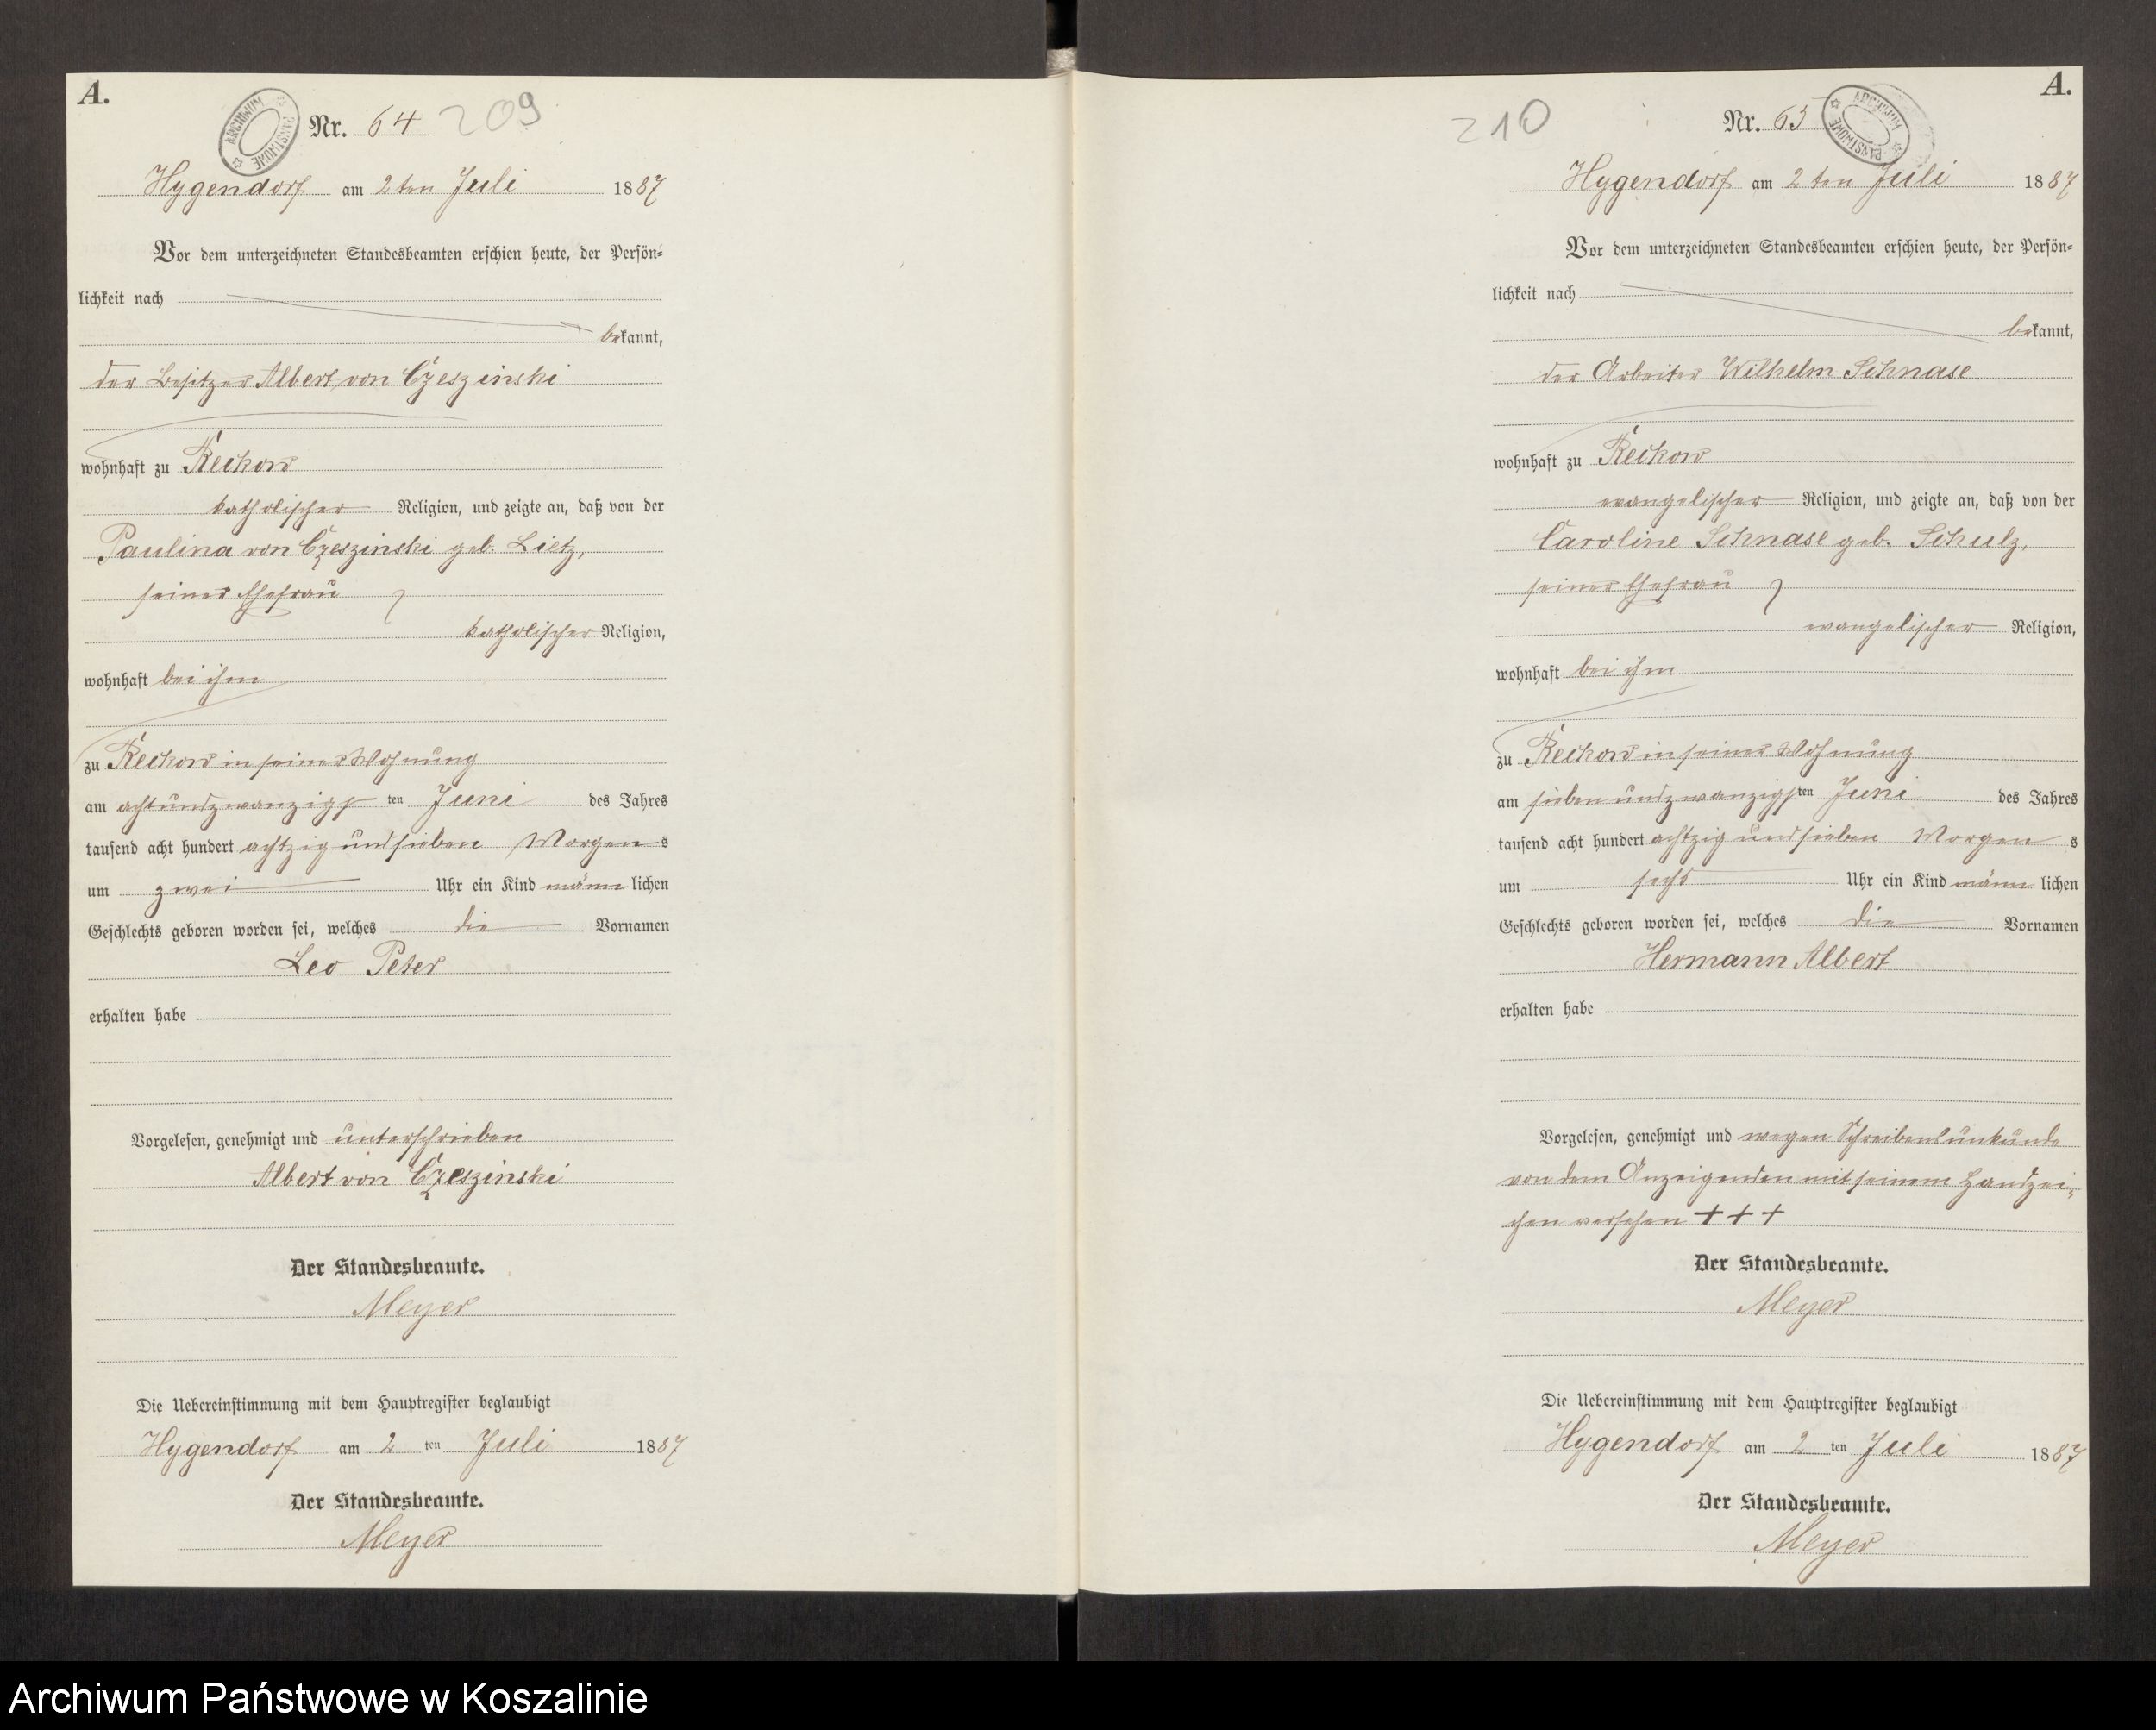 A.
ARCHIWUM PAŃSTWOWE
Nr. 64 209
Hygendorf am 2ten Juli 1887
Vor dem unterzeichneten Standesbeamten erschien heute, der Persön-
lichkeit nach
bekannt,
der Besitzer Albert von Czeszinski
wohnhaft zu Reckow
katholischer Religion, und zeigte an, daß von der
Paulina von Czeszinski geb. Lietz,
seiner Ehefrau
katholischer Religion,
wohnhaft bei ihm
zu Reckow in seiner Wohnung
am achtundzwanzigsten Juni des Jahres
tausend acht hundert achtzig und sieben Morgens
um zwei Uhr ein Kind männlichen
Geschlechts geboren worden sei, welches die Vornamen
Leo Peter
erhalten habe
Vorgelesen, genehmigt und unterschrieben
Albert von Czeszinski
Der Standesbeamte.
Meyer
Die Uebereinstimmung mit dem Hauptregister beglaubigt
Hygendorf am 2ten Juli 1887
Der Standesbeamte.
Meyer
A.
210 Nr. 65
ARCHIWUM PAŃSTWOWE
Hygendorf am 2ten Juli 1887
Vor dem unterzeichneten Standesbeamten erschien heute, der Persön-
lichkeit nach
bekannt,
der Arbeiter Wilhelm Schnase
wohnhaft zu Reckow
evangelischer Religion, und zeigte an, daß von der
Caroline Schnase geb. Schulz,
seiner Ehefrau
evangelischer Religion,
wohnhaft bei ihm
zu Reckow in seiner Wohnung
am siebenundzwanzigsten Juni des Jahres
tausend acht hundert achtzig und sieben Morgens
um sechs Uhr ein Kind männlichen
Geschlechts geboren worden sei, welches die Vornamen
Hermann Albert
erhalten habe
Vorgelesen, genehmigt und wegen Schreibensunkunde
von dem Anzeigenden mit seinem Handzei-
chen versehen + + +
Der Standesbeamte.
Meyer
Die Uebereinstimmung mit dem Hauptregister beglaubigt
Hygendorf am 2ten Juli 1887
Der Standesbeamte.
Meyer
Archiwum Państwowe w Koszalinie